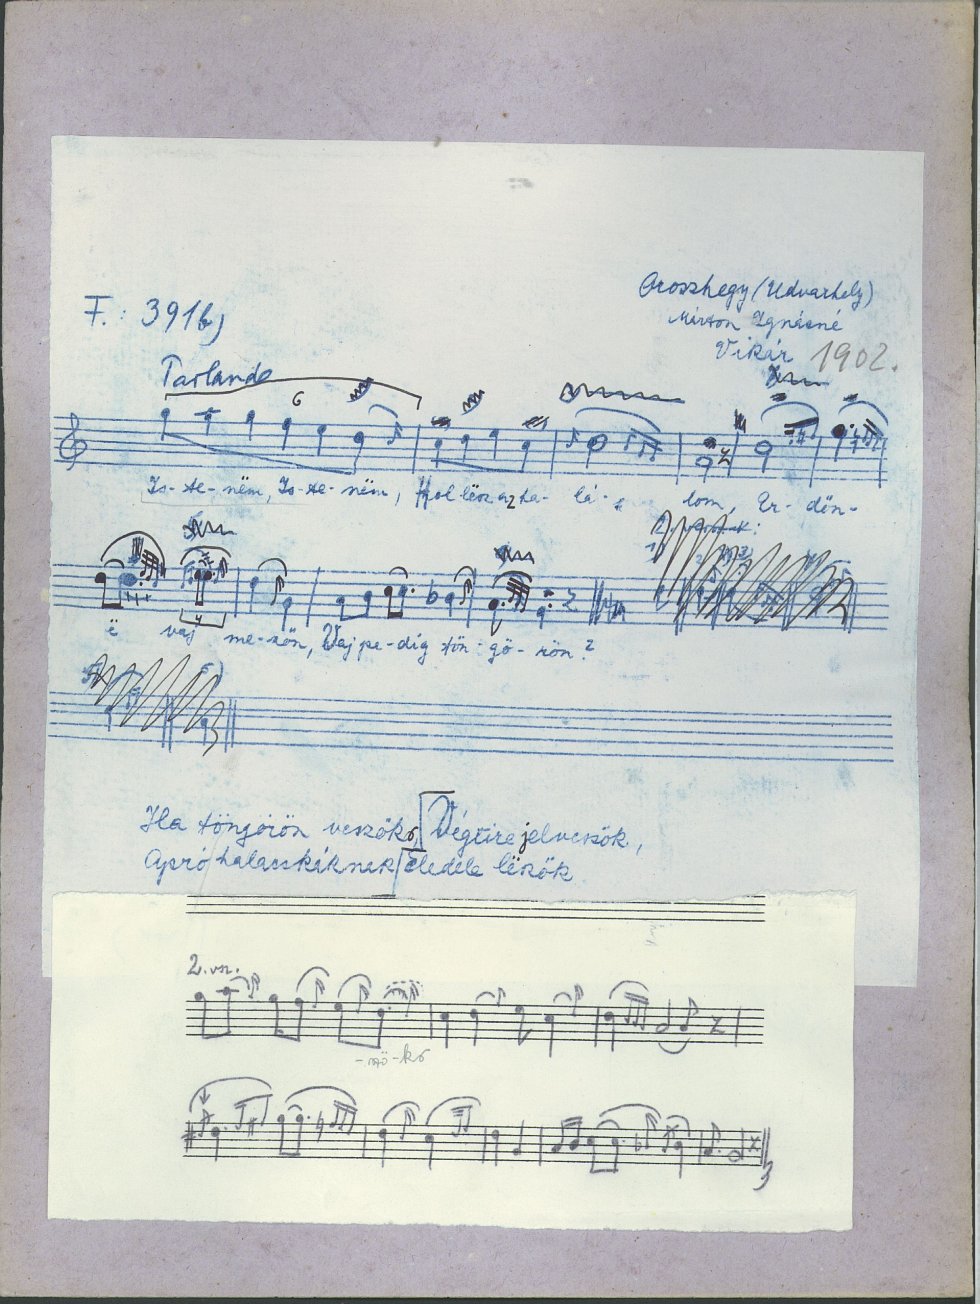 Oroszhegy (Udvarhely)
F. 391b)
Márton Ignácné
Vikár 1902.
Parlando
6
Is-te-nëm, Is-te-nëm, Hol lësz a ha-lá-lom, Er-dőn-
ë vaj me-zőn, Vaj pe-dig tön-gö-rön?
Ha töngörön veszök, Végtire jel veszök,
Apró halacskáknak eledële lëszök
2. vsz.
-szö-kő